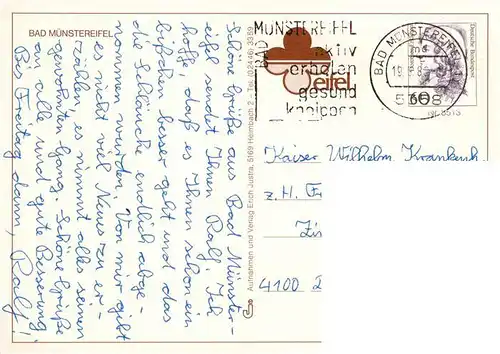 BAD MÜNSTEREIFEL
Schöne Grüße aus Bad Münster-
eifel sendet Ihnen Ralf. Ich
hoffe daß es Ihnen schon ein
bißchen besser geht und das
die Schläuche endlich abge-
nommen wurden. Von mir gibt
es nicht viel Neues zu er-
zählen, es nimmt alles seinen
gewohnten Gang. Schöne Grüße
an alle und gute Besserung
Bis Freitag dann, Ralf!
Aufnahmen und Verlag Erich Justra, 5169 Heimbach 2 - Tel. (02446) 3359
Eifel
MÜNSTEREIFEL
BAD
aktiv
erholen
gesund
kneippen
BAD MÜNSTEREIFEL 1
5358
60
Deutsche Bundespost
Kaiser Wilhelm Krankenh
z.H.
4100